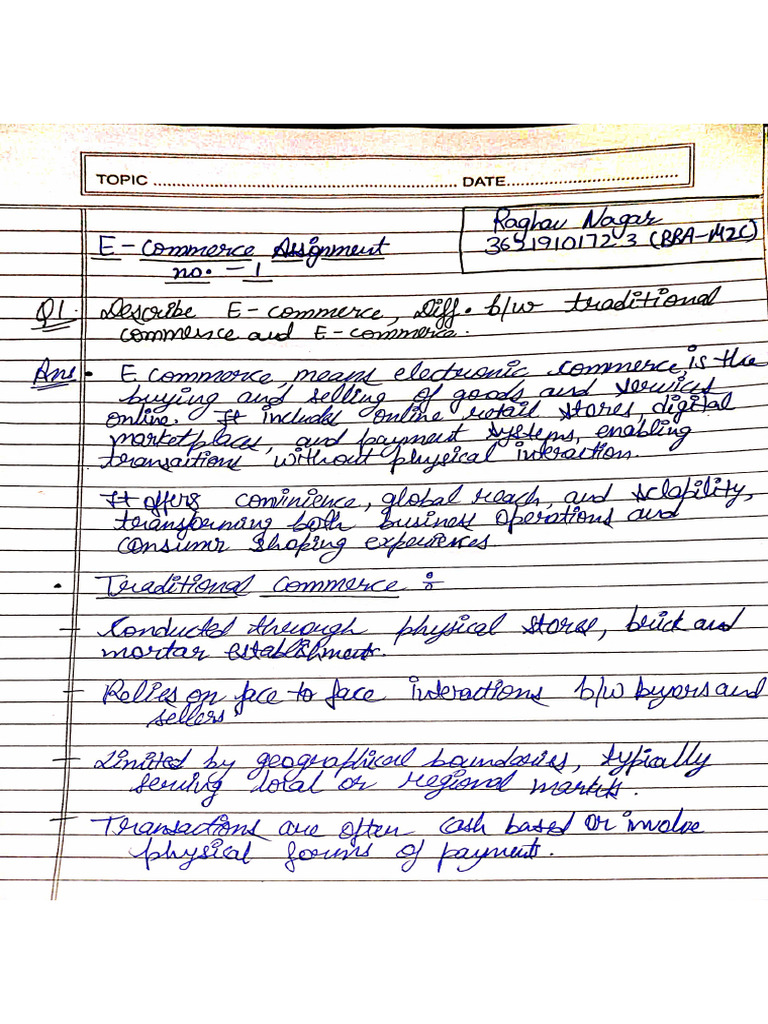 TOPIC ........ DATE........
Raghav Nagar
(BBA-M2C)
E-commerce Assignment
no. - 1
Q1. Describe E-commerce, Diff. b/w traditional
commerce and E-commerce.
Ans • E commerce, means electronic commerce, is the
buying and selling of goods and services
online. It includes online retail stores, digital
marketplaces, and payment systems, enabling
transactions without physical interaction.
It offers cominience, global reach, and sclability,
transforming both business operations and
consumr shoping experiences.
• Traditional commerce :-
- Conducted through physical stores, brick and
mortar establishments.
- Relies on face to face interactions b/w buyers and
sellers
- Limited by geographical boundaries, typically
serving local or regional markets.
- Transactions are often cash based or involve
physical forms of payment.